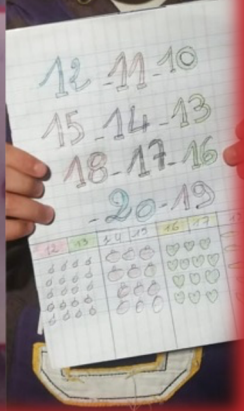 12 - 11 - 10
15 - 14 - 13
18 - 17 - 16
- 20 - 19
12 13 14 15 16 17